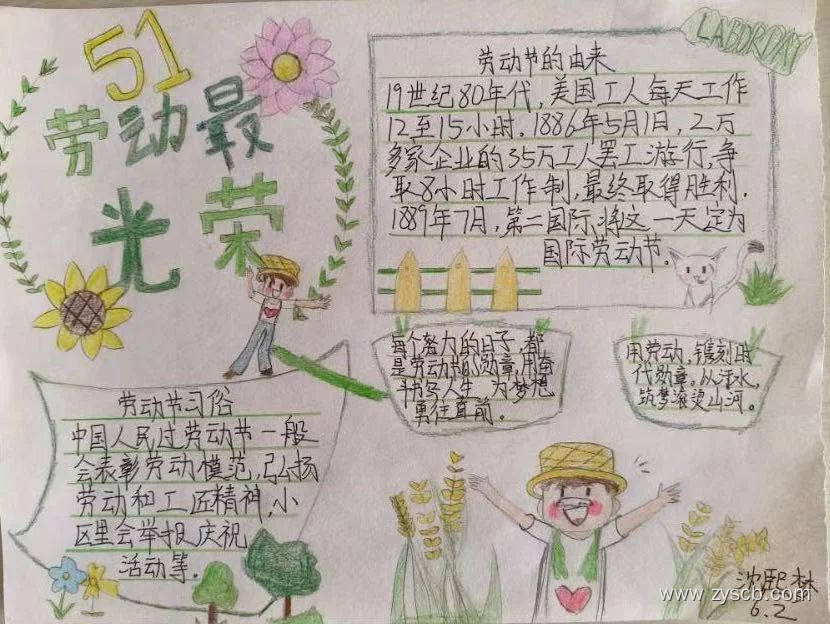 51
劳动最
光荣
LABORDAY
劳动节的由来
19世纪80年代，美国工人每天工作
12至15小时。1886年5月1日，2万
多家企业的35万工人罢工游行，争
取8小时工作制，最终取得胜利。
1889年7月，第二国际将这一天定为
国际劳动节。
每个努力的日子，都
是劳动节的勋章，用奋
书写人生，为梦想
勇往直前。
用劳动，镌刻时
代勋章。从汗水，
筑梦滚烫山河。
劳动节习俗
中国人民过劳动节一般
会表彰劳动模范，弘扬
劳动和工匠精神，小
区里会举报庆祝
活动等。
沈熙林
6.2
www.zyscb.com